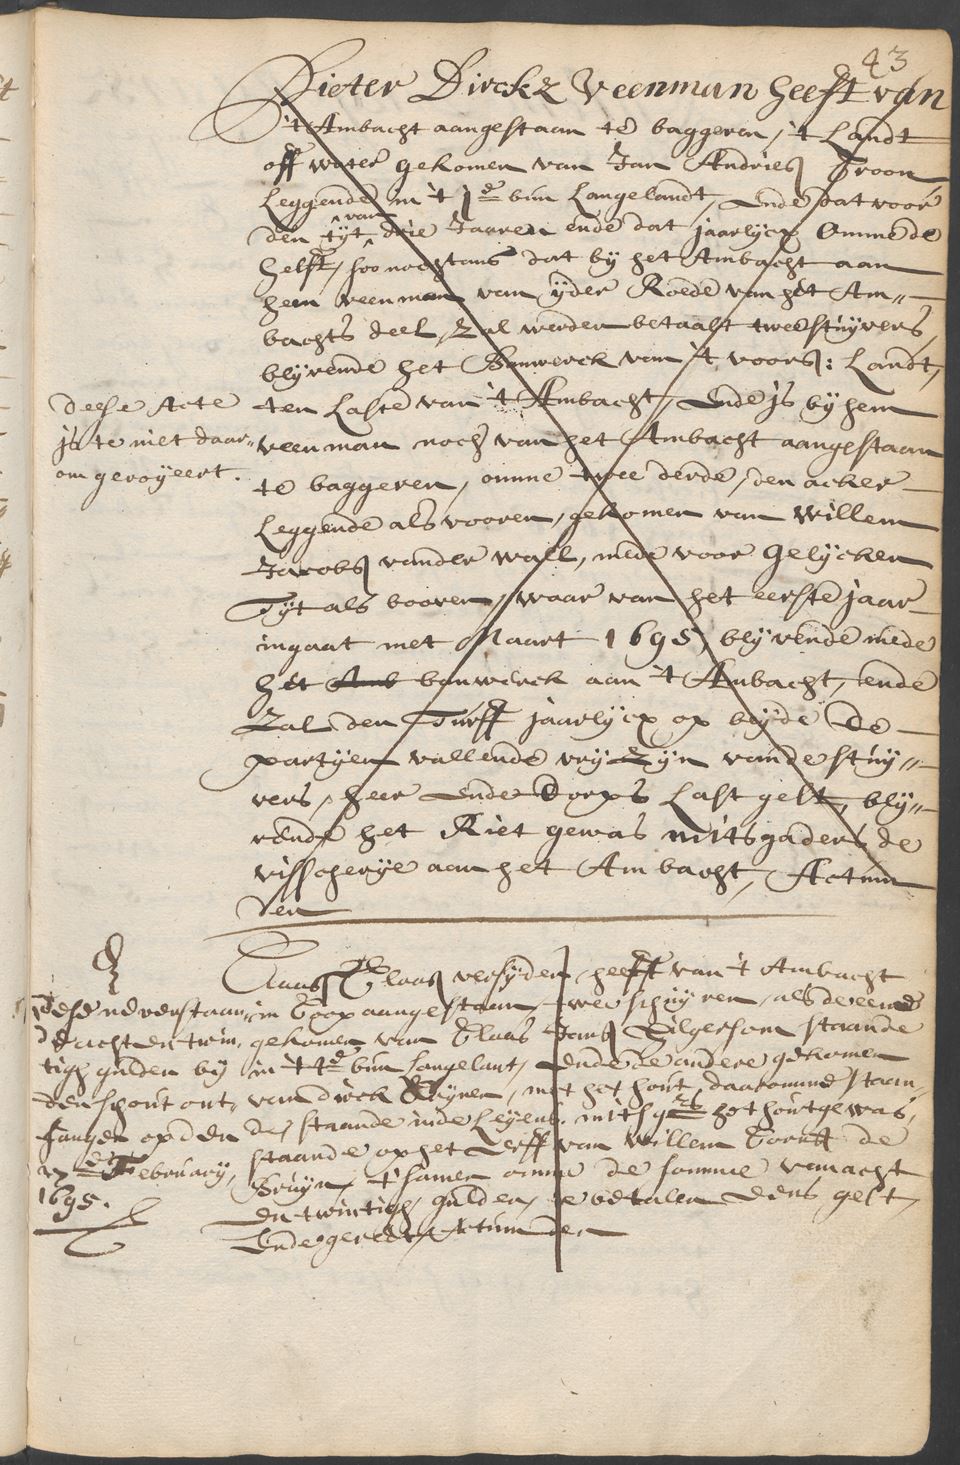 43
Pieter Dirckz Veenman heeft van
't Ambacht aangestaan te baggeren, 't Landt
off water gekomen van Jan Andriesz Troon
Leggende in 't 1e bun Langelandt, ende dat voor
den tijt van drie Jaaren ende dat jaarlijcx omme de
helft, soo nochtans dat bij het Ambacht aan
hem veenman van ijder Roede van het Am„
bachts deel, zal werden betaalt twee stuijvers,
blijvende het Bouwerck van 't voorsz: Landt,
ten Laste van 't Ambacht, Ende js bij hem
veenman noch van het Ambacht aangestaan
te baggeren, omme twee derde, den acker
Leggende als vooren, gekomen van Willem
Jacobsz vander wall, mede voor gelijcken
Tijt als vooren, waar van het eerste jaar
ingaat met Maart 1695, blijvende mede
het Amb bouwerck aan 't Ambacht, ende
Zal den Turff jaarlijcx op beijde de
partijen vallende vrij zijn vande stuij„
vers, heer ende Dorps Last gelt, blij„
vende het Riet gewas mitsgaders de
visscherije aan het Ambacht, Actum
den
Deese Acte
js te niet daar„
om geroijeert.
Claas Claasz versijden heeft van 't Ambacht
in Coop aangestaan, twee schuijren, als de eene
gekomen van Claas Jansz Hilgersom staande
in 't 1e bun Langelant, ende de andere gekomen
van Dirck Krijnen, met het hout daaromme staan,
de, staande inde Leijens. mitsgrs het houtgewas,
staande op het Werff van Willem Corn de
Bruijn, t'samen omme de somme van acht
en twintigh gulden, te betalen eens gelt,
Ende gereet, Actum den
Dese nevenstaan„
de acht en twin„
tigh gulden bij
den schout ont„
fangen op den
Februarij,
1695.